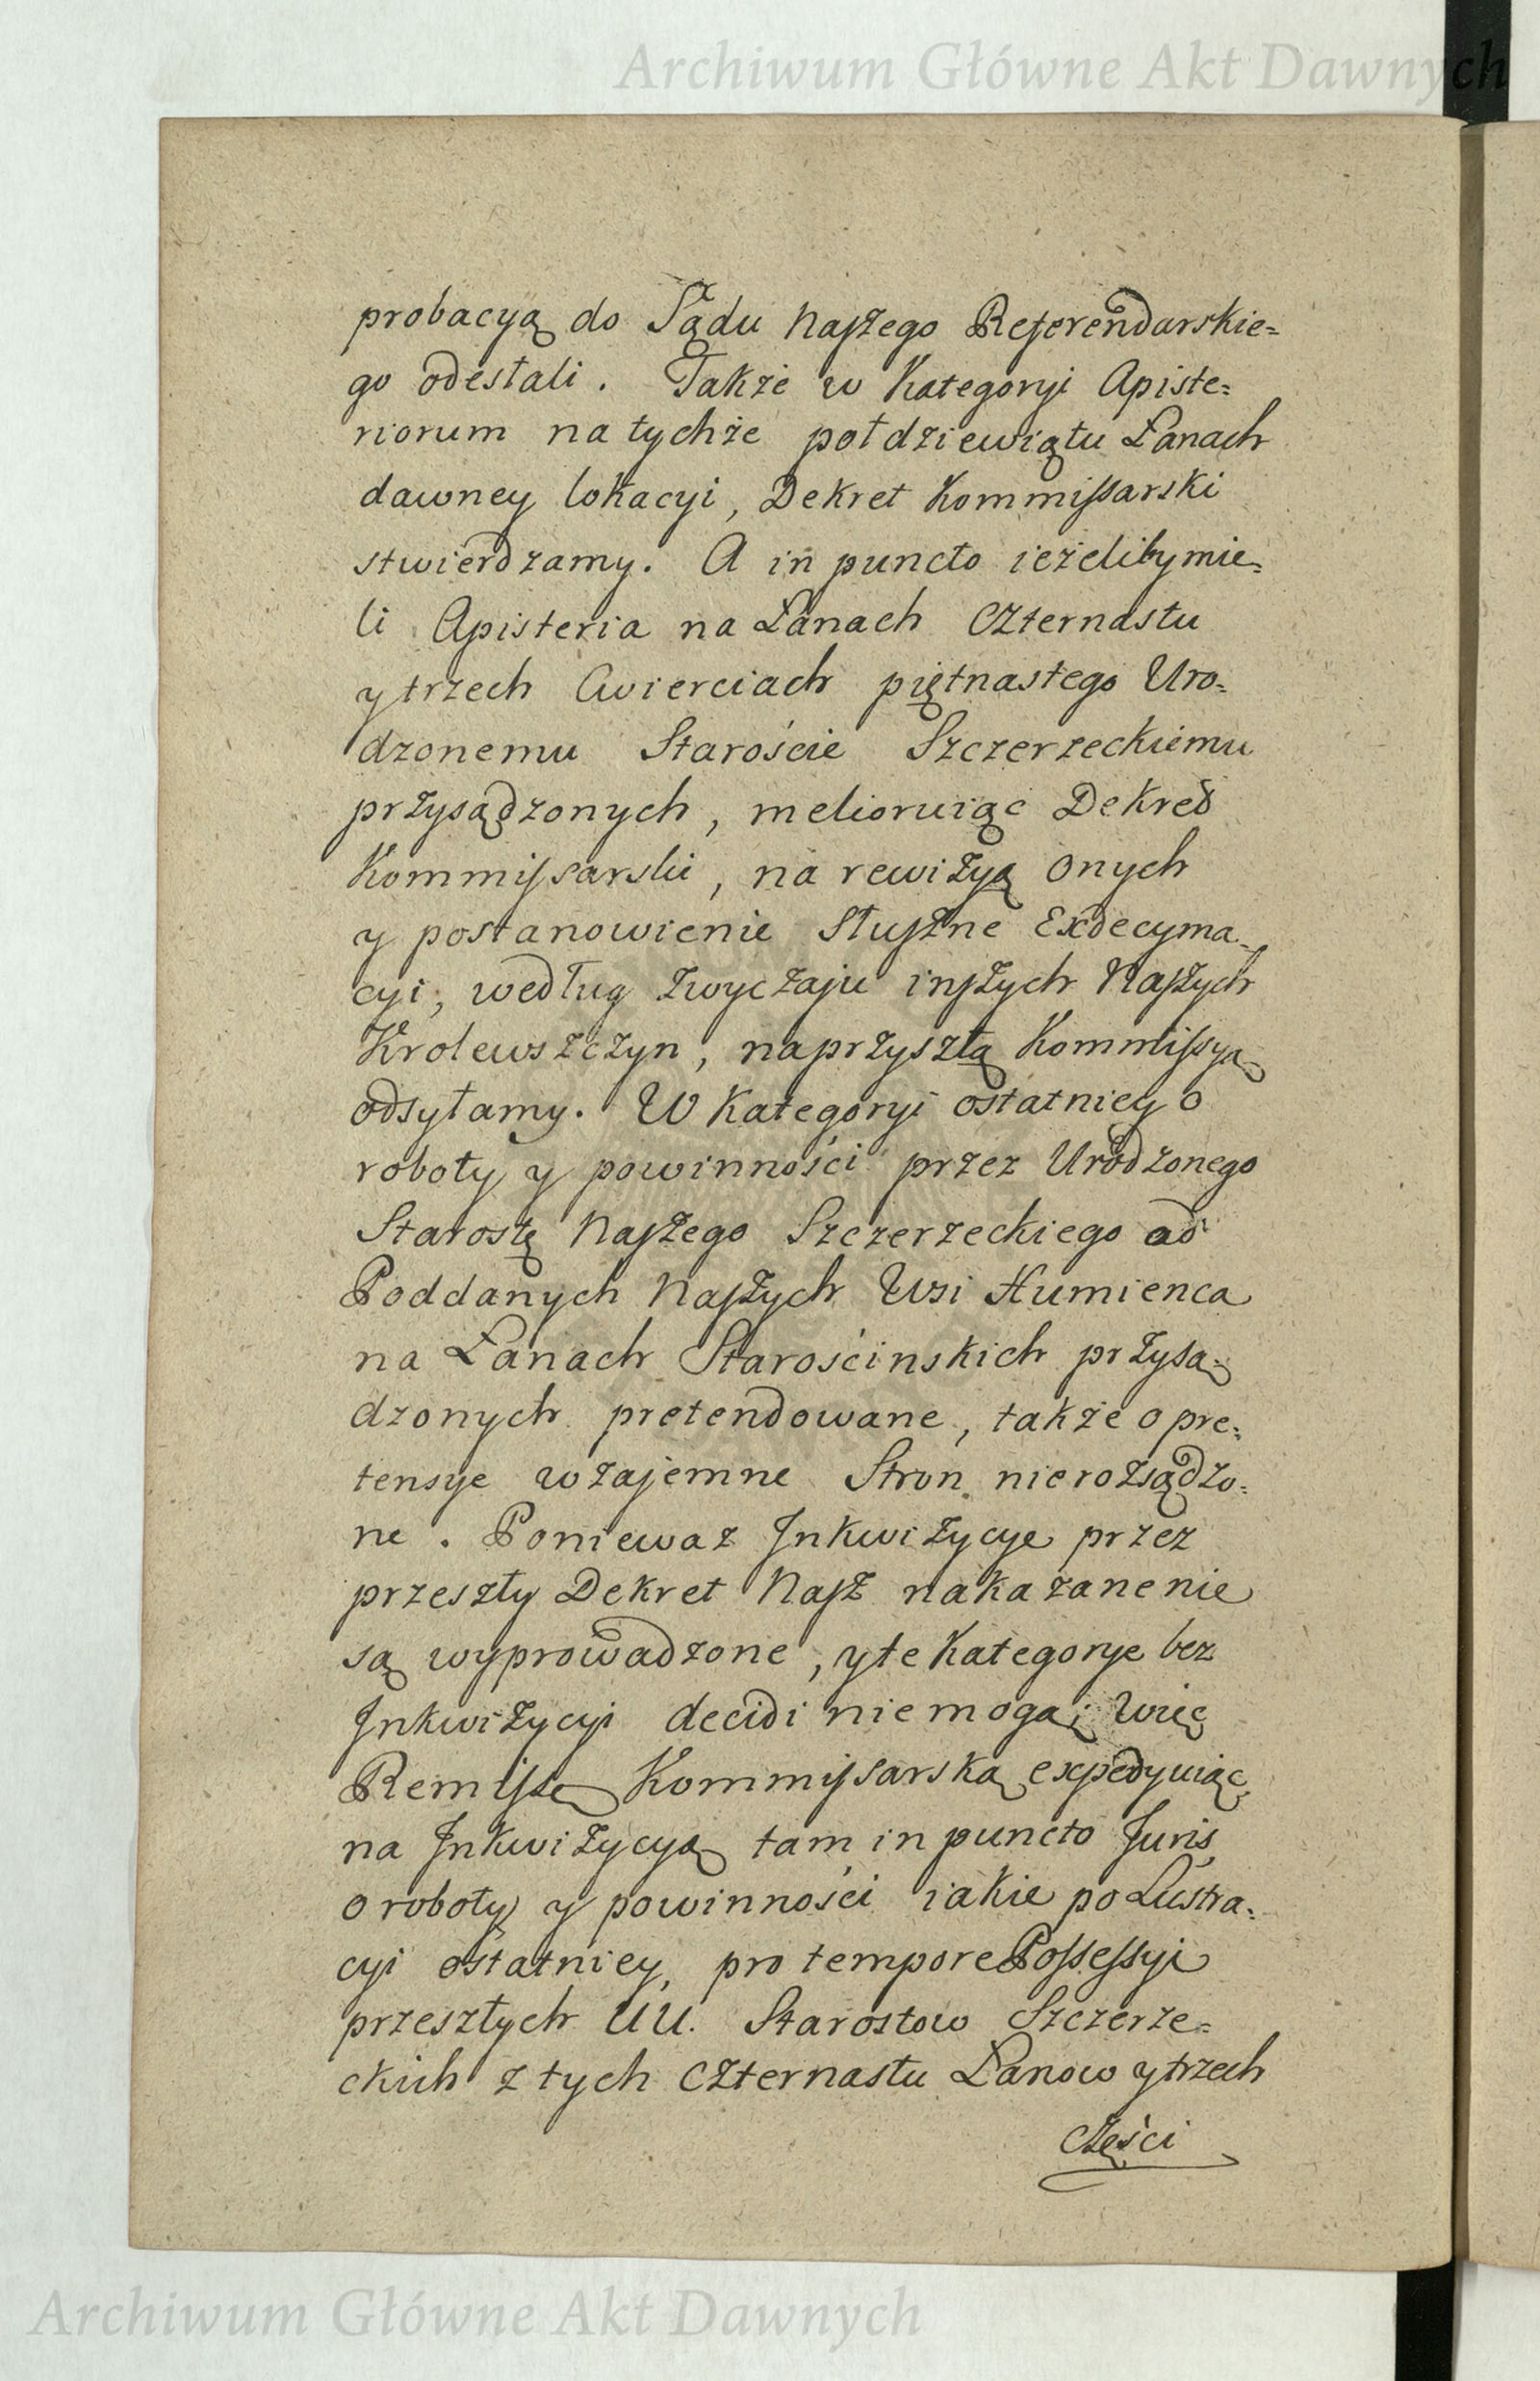 Archiwum Główne Akt Dawnych
probacyą do Sądu naszego Referendarskie=
go odesłali. Także w Kategoryi Apiste=
riorum na tychże połdziewiątu Łanach
dawney lokacyi, Dekret Kommissarski
stwierdzamy. A in puncto ieżeliby mie=
li Apisteria na Łanach Czternastu
y trzech Cwierciach piętnastego Uro=
dzonemu Starościе Szczerzeckiemu
przysądzonych, melioruiąc Dekret
Kommissarski, na rewizyą onych
y postanowienie słuszne Exdecyma=
cyi, według zwyczaju inszych Naszych
Krolewszczyn, na przyszłą Kommissyą
odsyłamy. W Kategoryi ostatniey o
roboty y powinności przez Urodzonego
Starostę Naszego Szczerzeckiego od
Poddanych Naszych Wsi Humienca
na Łanach Starościnskich przysą=
dzonych pretendowane, także o pre=
tensye wzajemne Stron nierozsądzo=
ne. Ponieważ Inkwizycye przez
przeszły Dekret Nasz nakazane nie
są wyprowadzone, y te Kategorye bez
Inkwizycyi decidi nie mogą; więc
Remissę Kommissarską expedyuiąc,
na Inkwizycyą tam in puncto Juris
o roboty y powinności iakie po Lustra=
cyi ostatniey, pro tempore Possessyi
przeszłych UU. Starostow Szczerze=
ckich z tych Czternastu Łanow y trzech
Części
Archiwum Główne Akt Dawnych